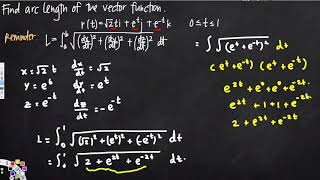 Find arc length of the vector function.
r(t) = √2 t i + e^t j + e^-t k    0 ≤ t ≤ 1
Reminder: L = ∫_a^b √((dx/dt)² + (dy/dt)² + (dz/dt)²) dt
x = √2 t    dx/dt = √2
y = e^t    dy/dt = e^t
z = e^-t    dz/dt = -e^-t
L = ∫_0^1 √((√2)² + (e^t)² + (-e^-t)²) dt
= ∫_0^1 √(2 + e^2t + e^-2t) dt.
= ∫ √((e^t + e^-t)²) dt
(e^t + e^-t)(e^t + e^-t)
e^2t + e^0 + e^0 + e^-2t
e^2t + 1 + 1 + e^-2t
2 + e^2t + e^-2t